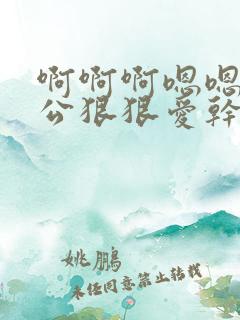 啊啊啊嗯嗯
公狠狠爱幹
姚鹏
未经同意禁止转载